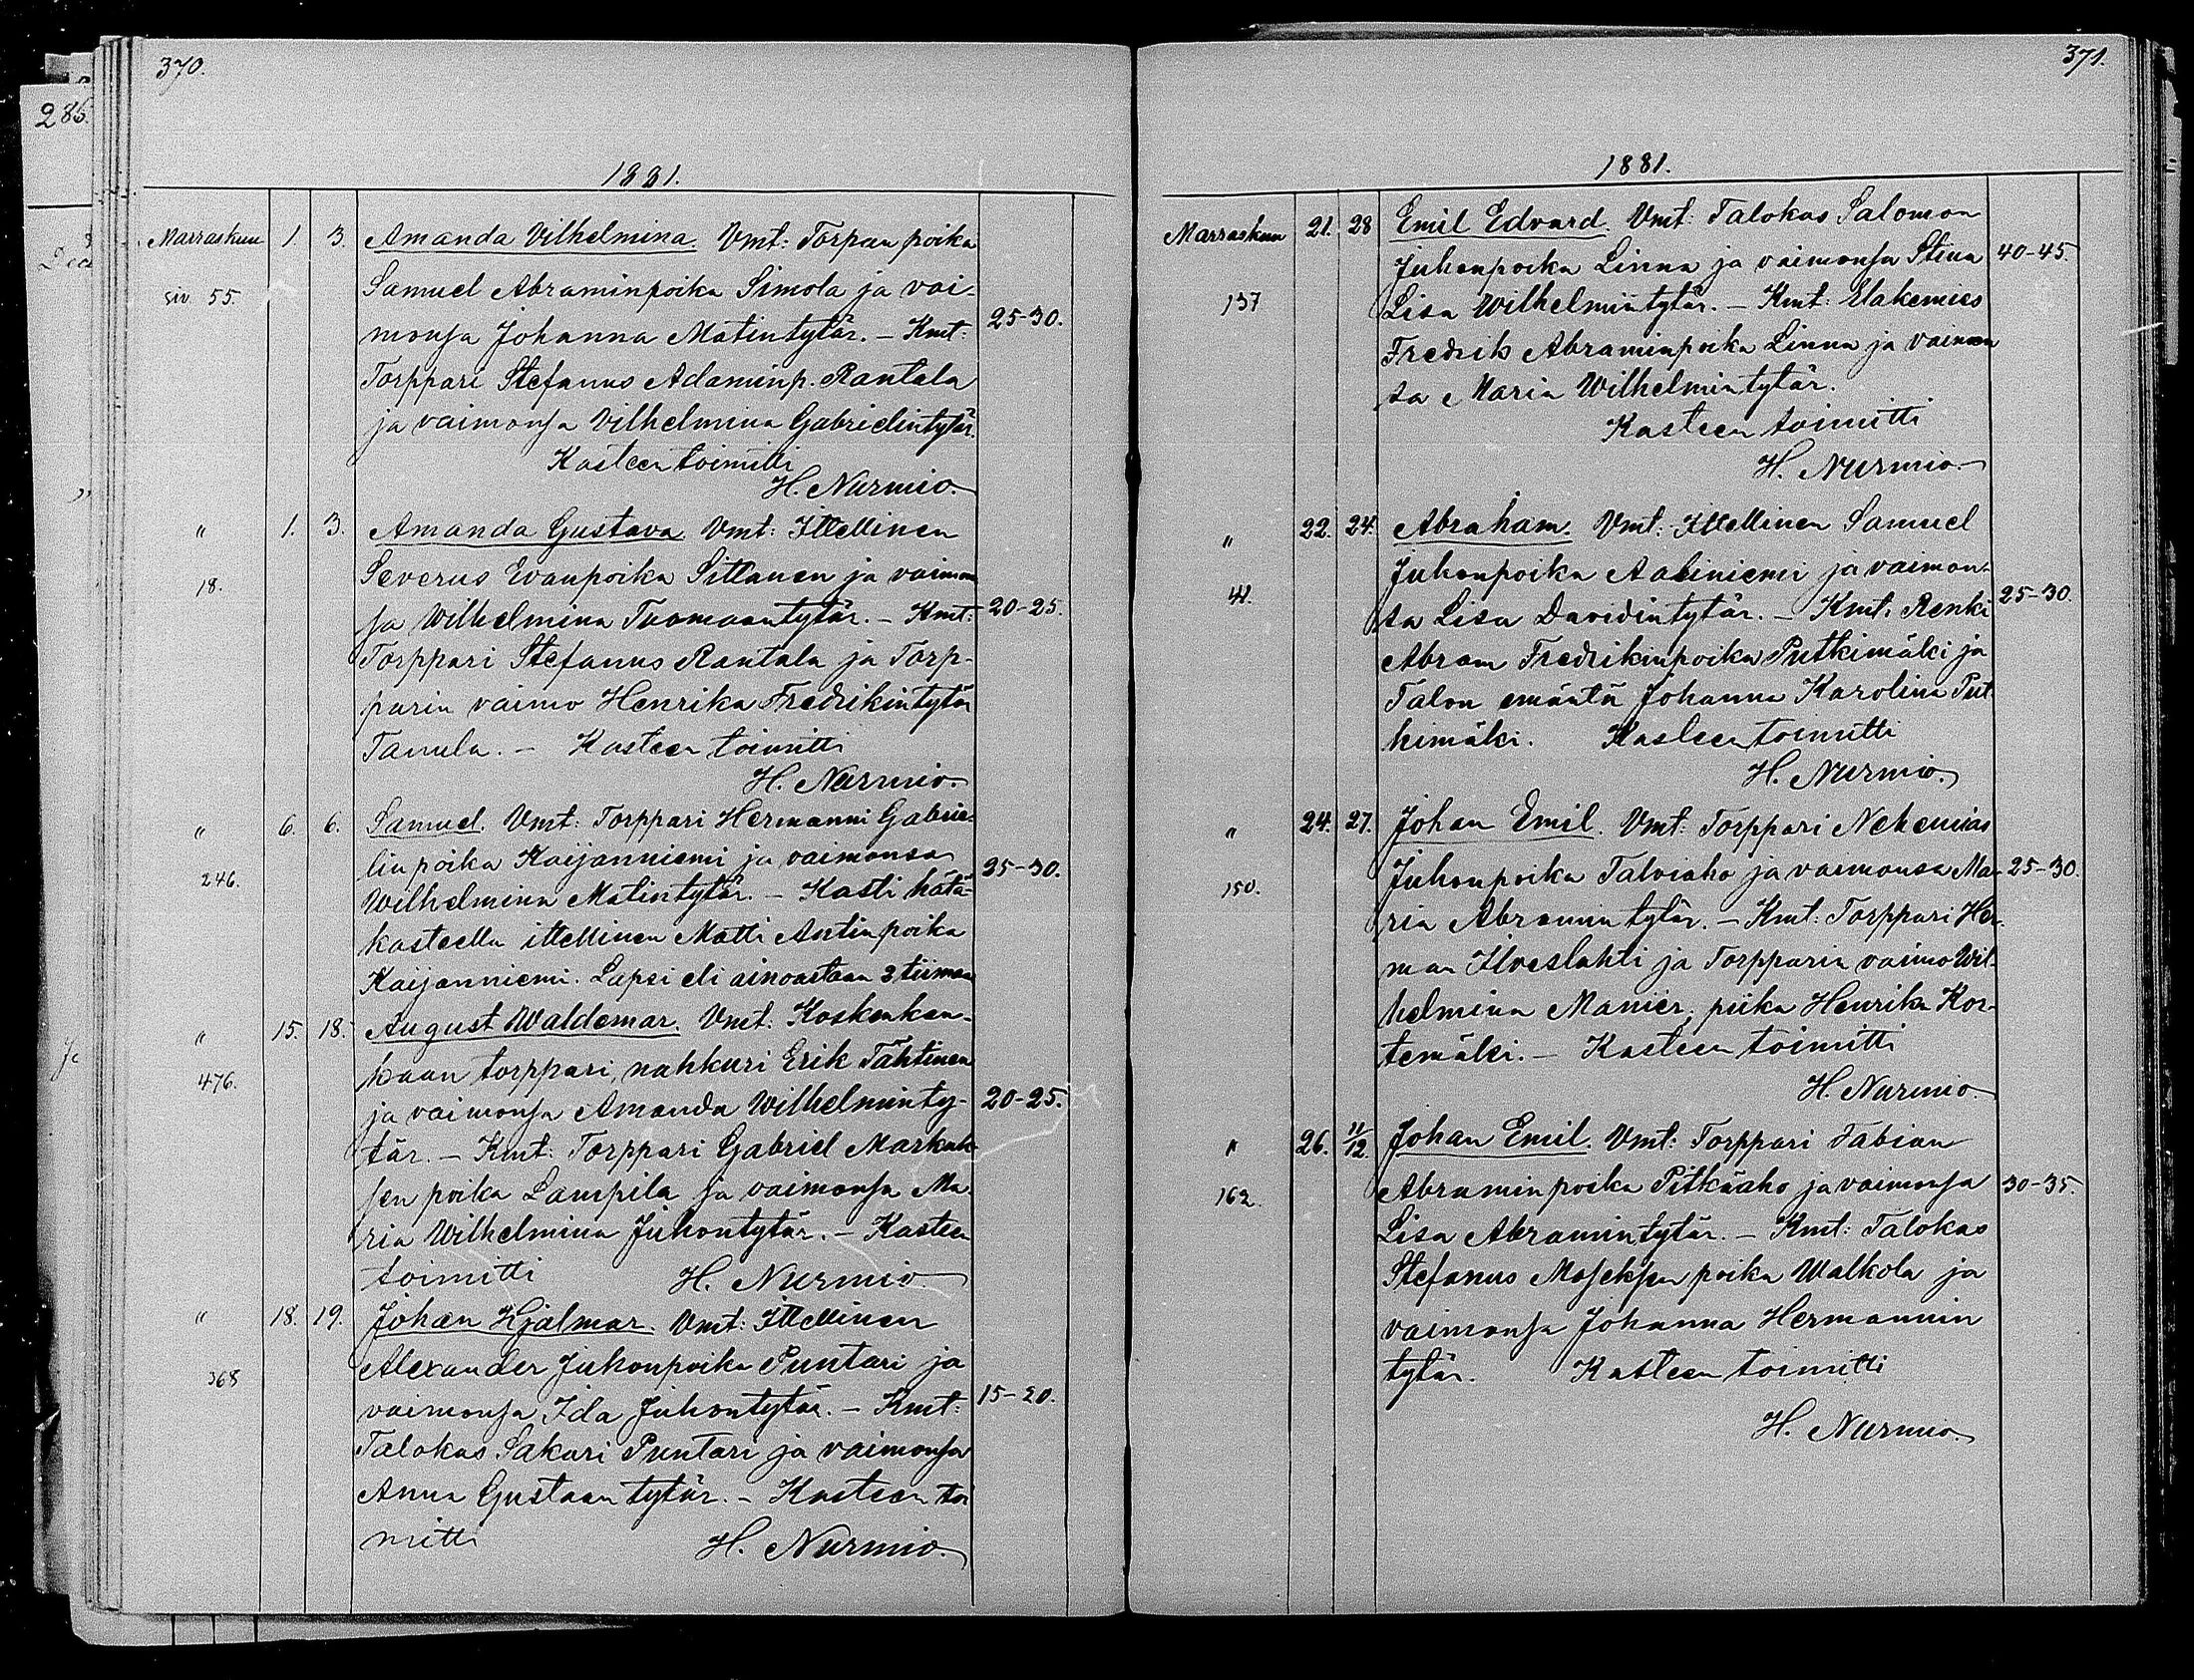 370.
286.
1881.
Marraskuu 1. 3. Amanda Vilhelmina. Vmt: Torpan poika
siv 55. Samuel Abraminpoika Simola ja vai-
monsa Johanna Matintytär. – Kmt: 25-30.
Torppari Stefanus Adaminp. Rantala
ja vaimonsa Vilhelmina Gabrielintytär.
Kasteen toimitti
H. Nurmio.
" 1. 3. Amanda Gustava. Vmt: Ittellinen
18. Severus Evanpoika Sillanen ja vaimon
sa Wilhelmina Tuomaantytär. – Kmt: 20-25.
Torppari Stefanus Rantala ja Torp-
parin vaimo Henrika Fredrikintytär
Tanula. – Kasteen toimitti
H. Nurmio.
" 6. 6. Samuel. Vmt: Torppari Hermanni Gabrie-
246. lin poika Kaijanniemi ja vaimonsa 25-30.
Wilhelmina Matintytär. – Kasti hätä-
kasteella ittellinen Matti Antinpoika
Kaijanniemi. Lapsi eli ainoastaan 2 tiimaa
" 15. 18. August Waldemar. Vmt: Koskenkan-
476. kaan torppari, nahkuri Erik Tähtinen
ja vaimonsa Amanda Wilhelminty- 20-25.
tär. – Kmt: Torppari Gabriel Markuk-
sen poika Lampila ja vaimonsa Ma-
ria Wilhelmina Juhontytär. – Kasteen
toimitti H. Nurmio
" 18. 19. Johan Hjalmar. Vmt: Ittellinen
368 Alexander Juhonpoika Puntari ja
vaimonsa Ida Juhontytär. – Kmt: 15-20.
Talokas Sakari Puntari ja vaimonsa
Anna Gustaan tytär. – Kasteen toi
mitti H. Nurmio.
371.
1881.
Marraskuu 21. 28 Emil Edvard. Vmt: Talokas Salomon
Juhonpoika Linna ja vaimonsa Stina 40-45.
137 Lisa Wilhelmiintytär. – Kmt: Elakemies
Fredrik Abraminpoika Linna ja vaimon
sa Maria Wilhelmintytär.
Kasteen toimitti
H. Nurmio.
" 22. 24. Abraham. Vmt: Ittellinen Samuel
Juhonpoika Aaliniemi ja vaimon-
41. sa Lisa Davidintytär. – Kmt: Renki 25-30.
Abram Fredrikinpoika Putkimäki ja
Talon emäntä Johanna Karolina Put-
kimäki. Kasteen toimitti
H. Nurmio.
" 24. 27. Johan Emil. Vmt: Torppari Nehemias
150. Juhonpoika Talviaho ja vaimonsa Ma- 25-30.
ria Abramin tytär. – Kmt: Torppari Her-
man Ilveslahti ja Torpparin vaimo Wil-
helmina Manier, piika Henrika Kor-
temäki. – Kasteen toimitti
H. Nurmio.
" 26. 11/12. Johan Emil. Vmt: Torppari Fabian
162. Abramin poika Pitkäaho ja vaimonsa 30-35.
Lisa Abramintytär. – Kmt: Talokas
Stefanus Moseksen poika Walkola ja
vaimonsa Johanna Hermannin
tytär. Kasteen toimitti
H. Nurmio.